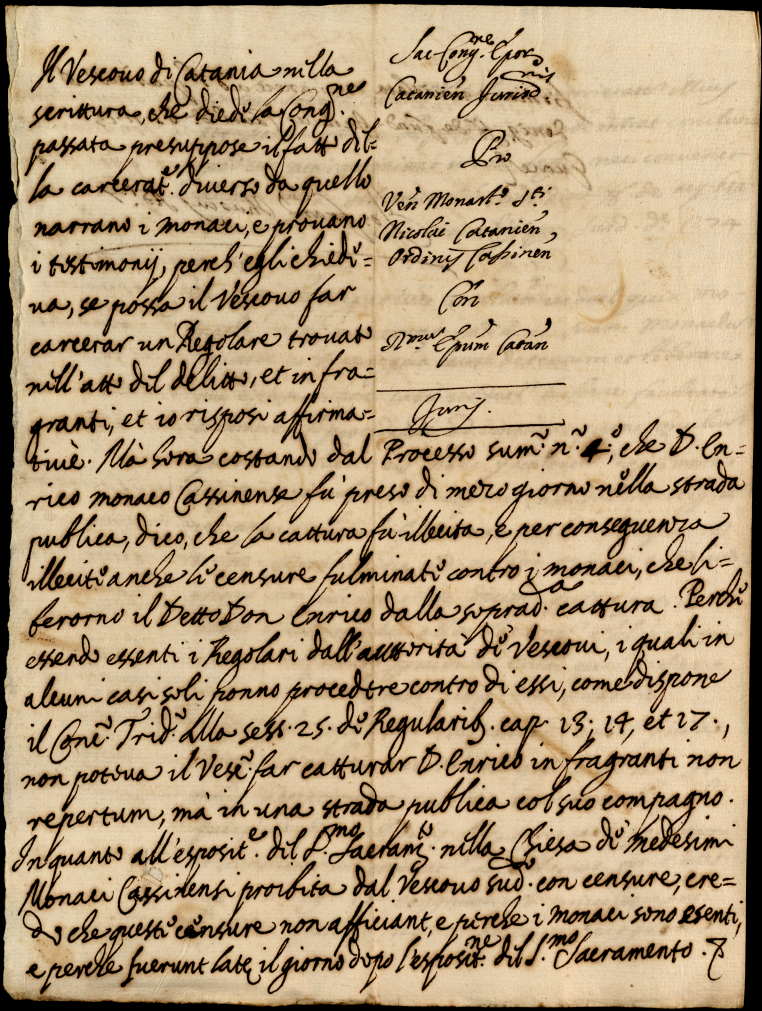 Il Vescouo di Catania nella
scrittura, che diede la Cong.ne
passata presuppose il fatto del=
la carcerat.e diuerso da quello
narrano i monaci, e prouano
i testimonij, perch'egli chiede=
ua, se possa il Vescouo far
carcerar un Regolare trouato
nell'atto del delitto, et in fra=
granti, et io risposi affirma=
Sac. Cong.ne Epor.
Catanien Jurisd.nis
Pro
Ven Monast.o S.ti
Nicolai Catanien
Ordinis Cassinen
Con
R.mum Epum Catan
Juris.
tiuè. Mà hora costando dal Processo sum. n.o 4.o, che D. En=
rico monaco Cassinense fù preso di mezo giorno nella strada
publica, dico, che la cattura fù illecita, e per conseguenza
illecite anche le censure fulminate contro i monaci, che li=
berorno il Detto Don Enrico dalla soprad.a cattura. Perche
essendo essenti i Regolari dall'auttorità de Vescoui, i quali in
alcuni casi soli ponno procedere contro di essi, come dispone
il Conc. Trid. alla sess. 25. de Regularib. cap. 13; 14, et 17.,
non poteua il Vesc. far catturar D. Enrico in fragranti non
repertum, mà in una strada publica col suo compagno.
In quanto all'esposit.e del S.mo Sacram.to nella Chiesa de medesimi
Monaci Cassinensi proibita dal Vescouo sud.o con censure, cre=
do che queste censure non afficiant, e perche i monaci sono esenti,
e perche fuerunt latę il giorno dopo l'esposit.ne del S.mo Sacramento.